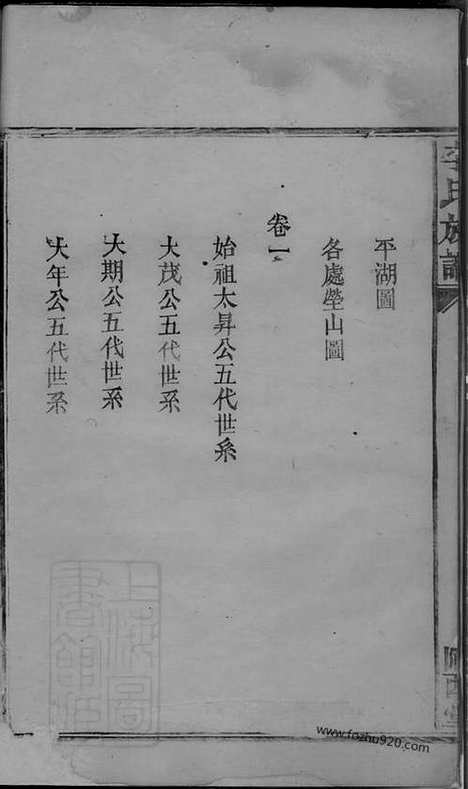 李氏族譜
平湖圖
各處塋山圖
卷一
始祖太昇公五代世系
大茂公五代世系
大期公五代世系
大年公五代世系
隴西堂
上海圖書館藏
www.fozhu920.com